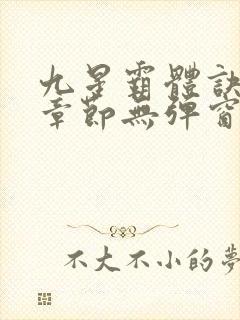 九星霸體訣
章節無彈窗
不大不小的夢